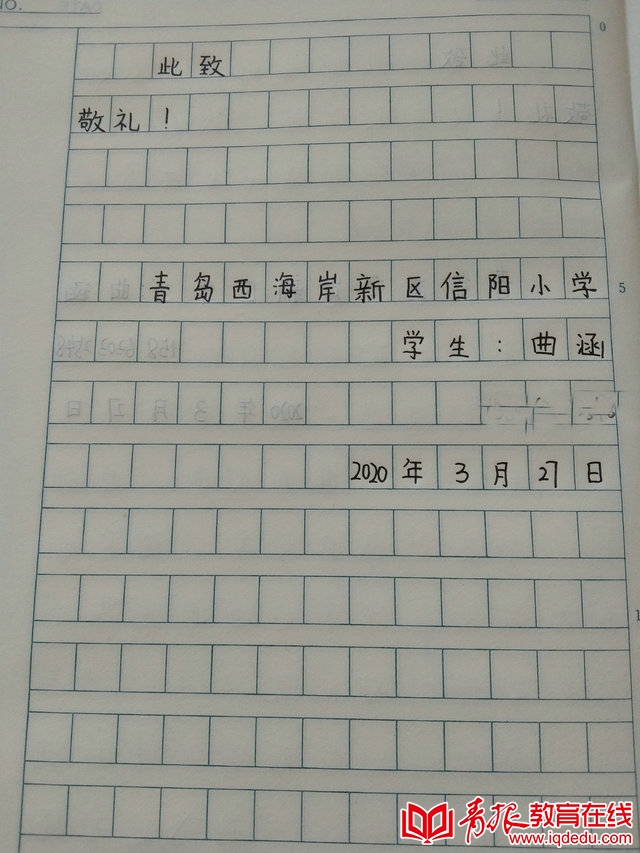 NO.
0
此致
敬礼！
青岛西海岸新区信阳小学
5
学生：曲涵
2020年3月27日
1
青报教育在线
www.iqdedu.com